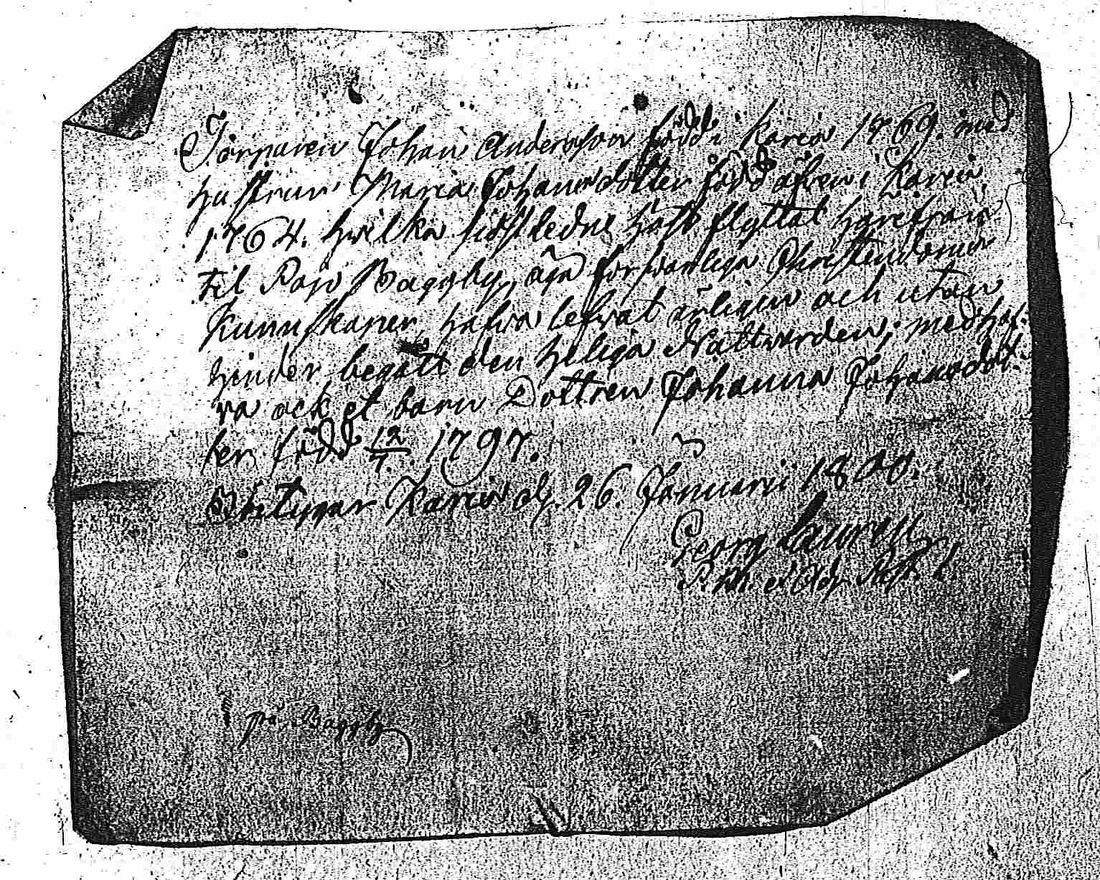 Torparen Johan Andersson född i Karis 1769. med
hustrun Maria Johansdotter född äfven i Karis
1764. hvilka sistledne höst flyttat härifrån
til Pojo Baggby, äga försvarliga Christendoms
kunnskaper, hafva lefvat ärligen och utan
hinder begått den Heliga Nattvarden; med haf-
va ock et barn Dottren Johanna Johansdot-
ter född 12/7 1797.
Karis d. 26. Januarii 1800.
Georg
på Baggby